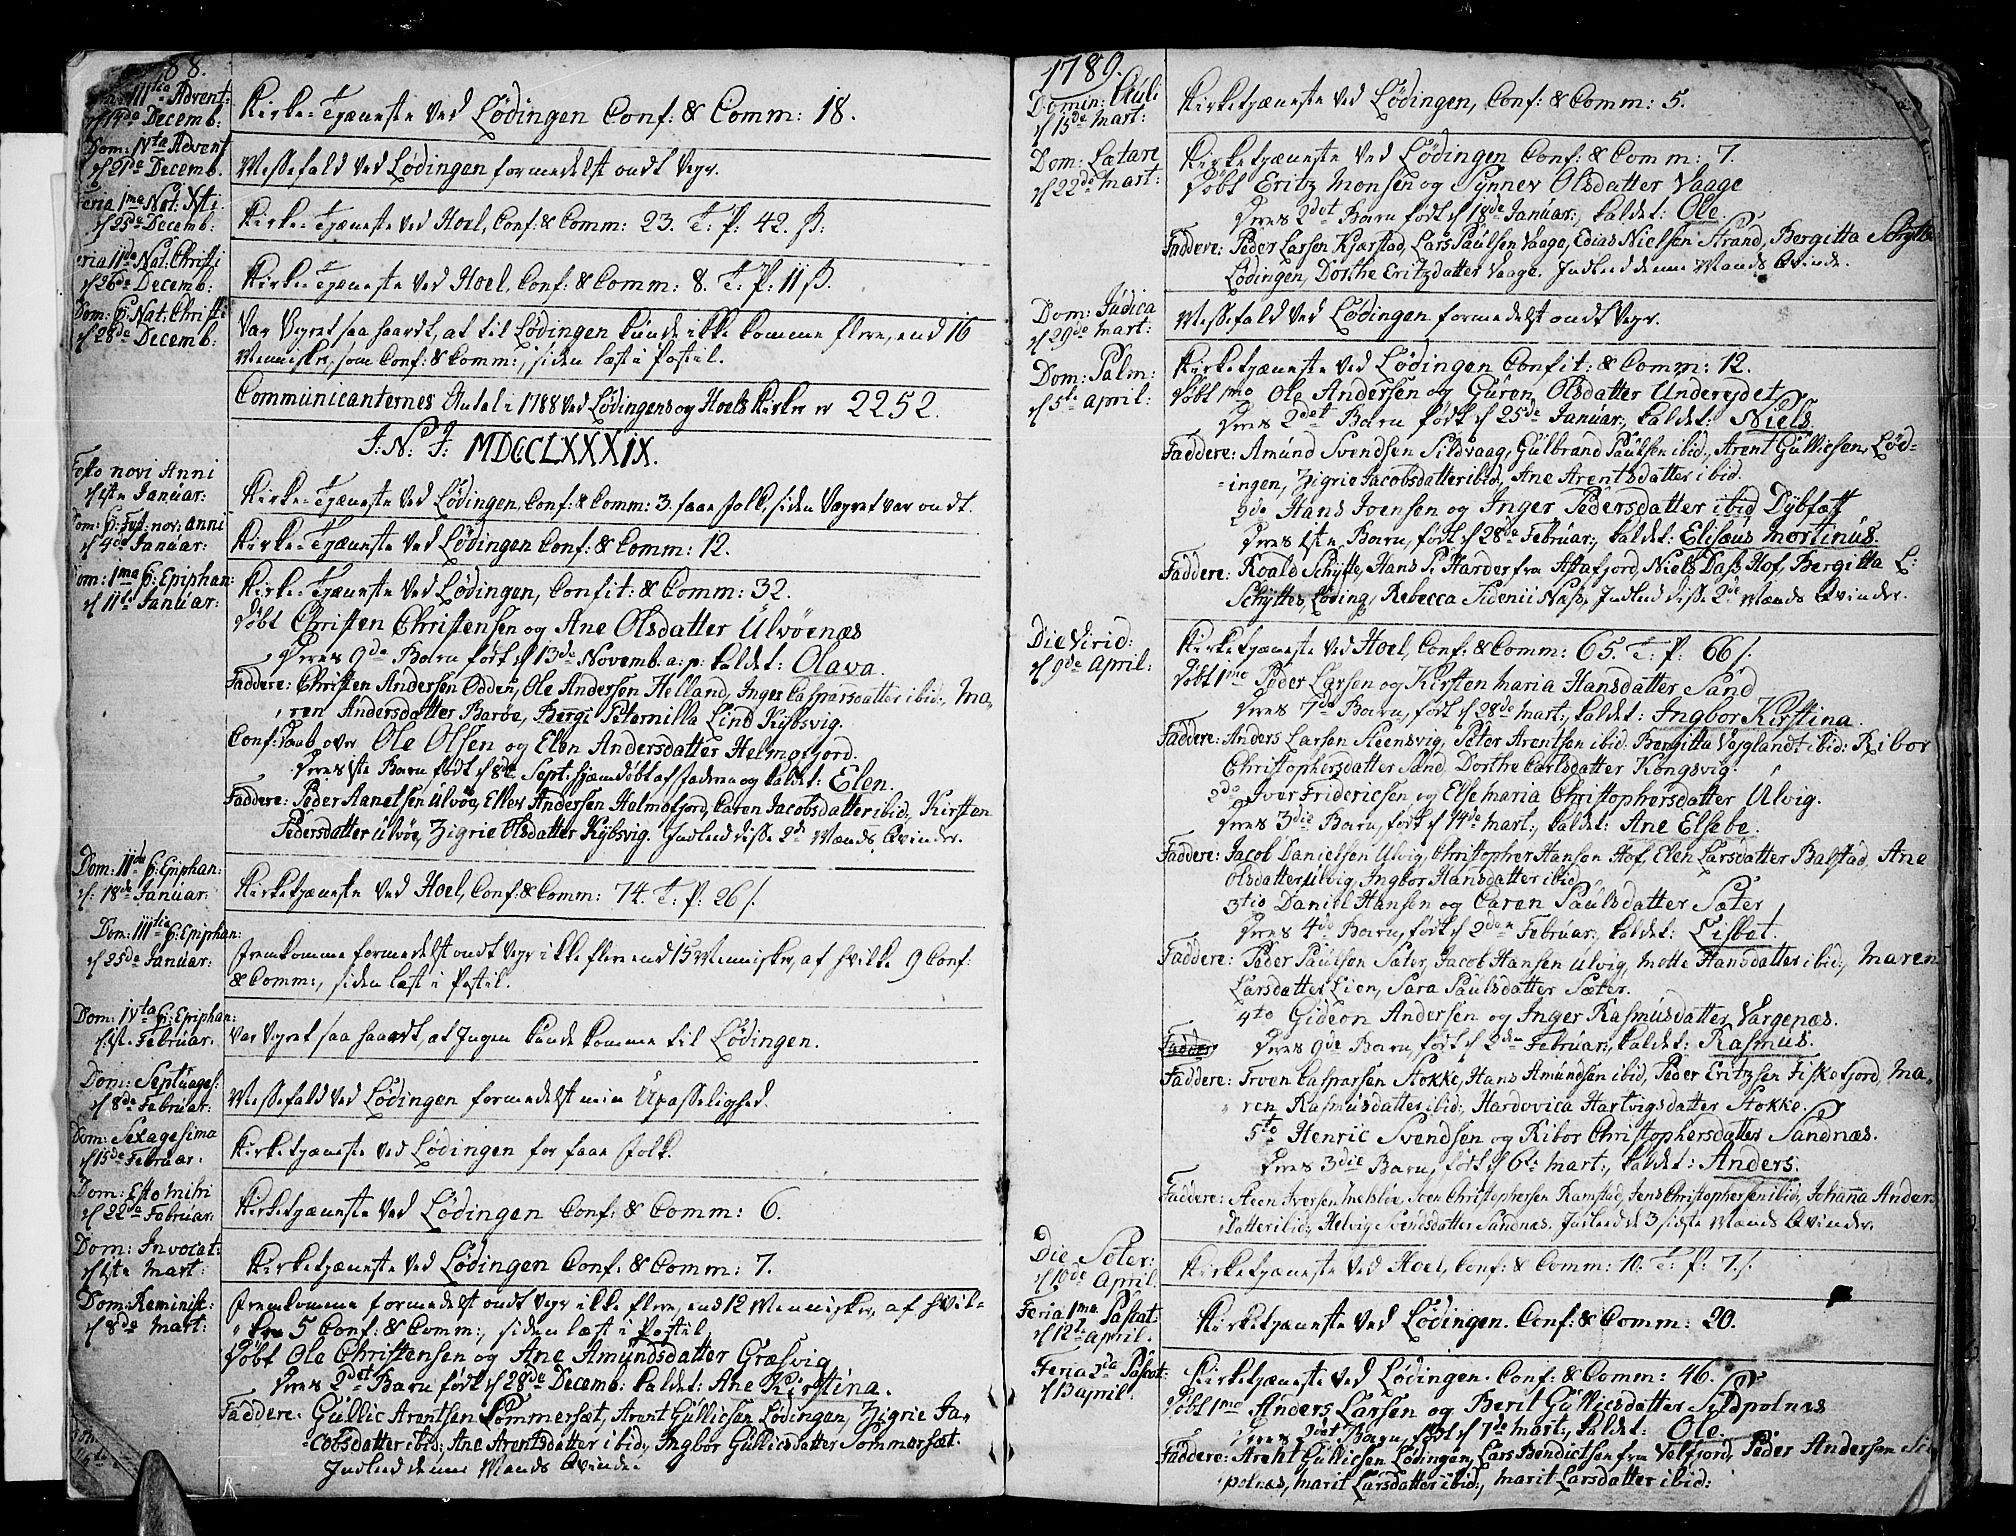 88.
Dom: IIItia Advent:
d 14de Decemb:
Kirke-Tjæneste Ved Lødingen Conf: & Comm: 18.
Dom: IVta Advent
d 21de Decemb.
Messefald Ved Lødingen formedelst ondt Vejr.
Feria 1ma Nat: Xsti
d 25de Decemb:
Kirke-Tjæneste Ved Hoel, Conf: & Comm: 23. T. P: 42. ß:
Feria IIda Nat: Christi
d 26de Decemb:
Kirke-Tjæneste Ved Hoel, Conf: & Comm: 8. T: P: 11 ß.
Dom: p: Nat: Christi
d 28de Decemb:
Var Vejret saa haardt, at til Lødingen kunde ikke komme flere, end 16
Mennisker, som Conf: & Comm:, siden læst i Postil.
Communicanternes Antal i 1788 Ved Lødingens og Hoels Kirker er 2252.
I: N: J: MDCCLXXXIX.
Festo novi Anni
d 1ste Januar:
Kirke-Tjæneste Ved Lødingen, Conf: & Comm: 3. faae folk, siden Vejret var ondt.
Dom: p: Fest: nov: anni
d 4de Januar:
Kirke-Tjæneste Ved Lødingen Conf: & Comm: 12.
Dom: 1ma p: Epiphan:
d 11te Januar:
Kirke-Tjæneste Ved Lødingen, Confit: & Comm: 32.
Døbt Christen Christensen og Ane Olsdatter Ulvøenæs
Deres 9de Barn født d 13de Novemb. a: p: kaldet: Olava.
Faddere: Christen Andersen Odden, Ole Andersen Helland, Inger Casparsdatter ibid:, Ma-
ren Andersdatter Barøe, Bergi Peternilla Lind Kjøbsvig.
Conf: Daab over Ole Olsen og Elen Andersdatter Helmofjord.
Deres 1ste Barn født d 8de Sept: hjemdøbt af faderen og kaldet: Elen.
Faddere: Peder Aanetsen Ulvøe, Ellev Andersen Helmofjord, Caren Jacobsdatter ibid:, Kirsten
Pedersdatter Ulvøe, Zigrie Olsdatter Kjøbsvig. Indled disse 2de Mænds Qvinder.
Dom: IIda p: Epiphan:
d: 18de Januar:
Kirketjæneste Ved Hoel, Conf: & Comm: 74. T: P: 26 ß.
Dom: IIItia p: Epiphan:
d 25de Januar:
fremkomme formedelst ondt Vejr ikke flere end 15 Mennisker, af hvilke 9 Conf:
& Comm:, siden læst i Postil.
Dom: IVta p: Epiphan:
d 1ste Februar.
Var Vejret saa haardt, at Ingen kunde komme til Lødingen.
Dom: Septuages:
d 8de Februar:
Messefald Ved Lødingen formedelst min Upasselighed.
Dom: Sexagesima
d 15de Februar.
Kirketjæneste Ved Lødingen for faae folk.
Dom: Esto Mihi
d 22de Februar:
Kirketjæneste Ved Lødingen Conf: & Comm: 6.
Dom: Invocat:
d 1ste Mart:
Kirketjæneste Ved Lødingen Conf: & Comm: 7.
Dom: Reminisc:
d 8de Mart:
fremkomme formedelst ondt Vejr ikke flere, end 12 Mennisker, af hvil-
ke 5 Conf: & Comm:, siden læst i Postil,
Døbt Ole Christensen og Ane Amundsdatter Græsvig
Deres 2det Barn født d 28de Decemb: kaldet: Ane Kirstina.
Faddere: Gullic Arentsen Sommersæt, Arent Gullicsen Lødingen, Zigrie Ja-
cobsdatter ibid:, Ane Arentsdatter ibid:, Ingbor Gullicsdatter Sommersæt.
Indled denne Mands Qvinde.
1789.
Domin: Oculi
d 15de Mart:
Kirketjæneste Ved Lødingen, Conf: & Comm: 5.
Dom: Lætare
d 22de Mart:
Kirketjæneste Ved Lødingen Conf: & Comm: 7.
Døbt Eritz Monsen og Synnev Olsdatter Vaage
Deres 2det Barn født d 18de Januar:, kaldet: Ole.
Faddere: Peder Larsen Kjærstad, Lars Paulsen Vaage, Edias Nielsen Strand, Bergitta Schytte
Lødingen, Dorthe Eritzdatter Vaage. Indled denne Mands Qvinde.
Dom: Judica
d 29de Mart:
Messefald Ved Lødingen formedelst ondt Vejr.
Dom: Palm:
d 5te April:
Kirketjæneste Ved Lødingen Confit: & Comm: 12.
Døbt 1mo Ole Andersen og Guren Olsdatter Undereydet
Deres 2det Barn født d 25de Januar:, kaldet: Niels.
Faddere: Amund Svendsen Sildvaag, Gulbrand Paulsen ibid:, Arent Gullicsen Lød-
ingen, Zigrie Jacobsdatter ibid, Ane Arentsdatter ibid.
2do Hans Joensen og Inger Pedersdatter ibid Dybfæst
Deres 1ste Barn, født d 28de Februar:, kaldet: Elisæus Mortinus.
Faddere: Roald Schytte, Hans P: Harder fra Astafjord, Niels Dass Hof, Bergitta L:
Schyttes Løding, Rebecca Sidenii Næss, Indled disse 2de Mænds Qvinder.
Die Virid:
d 9de April:
Kirketjæneste Ved Hoel, Conf: & Comm: 65. T: P: 66 ß.
Døbt 1mo Peder Larsen og Kirsten Maria Hansdatter Sand
Deres 7de Barn, født d 28de Mart:, kaldet: Ingbor Kirstina.
Faddere: Anders Larsen Steensvig, Peter Arentsen ibid: Bergitta Vejglandt ibid: Ribor
Christophersdatter Sand, Dorthe Carlsdatter Kongsvig.
2do Iver Fridericsen og Else Maria Christophersdatter Ulvig.
Deres 3die Barn, født d 14de Mart:, kaldet: Ane Elsebe.
Faddere: Jacob Danielsen Ulvig, Christopher Hansen Hof, Elen Larsdatter Balstad, Ane
Olsdatter Ulvig, Ingbor Hansdatter ibid.
3tio Daniel Hansen og Caren Paulsdatter Sæter
Deres 4de Barn, født d 2den Februar:, kaldet: Lisbet.
Faddere: Peder Paulsen Sæter, Jacob Hansen Ulvig, Motte Hansdatter ibid:, Maren
Larsdatter Lien, Sara Paulsdatter Sæter.
4to Gideon Andersen og Inger Rasmusdatter, Vargenæs.
Deres 9de Barn, født d 2den Februar:, kaldet: Rasmus.
Faddere: Troen Casparsen Stokke, Hans Amundsen ibid, Peder Eritzsen Fiskefjord, Ma-
ren Rasmusdatter ibid:, Hardovica Hartvigsdatter Stokke.
5to Henric Svendsen og Ribor Christophersdatter Sandnæs.
Deres 3die Barn, født d 6te Mart:, kaldet: Anders.
Faddere: Steen Iversen Melsløe, Joen Christophersen Ramstad, Jens Christophersen ibid:, Johanna Anders
datter ibid:, Helvig Svendsdatter Sandnæs. Indled de 3 sidste Mænds Qvinder.
Die Soter:
d 10de April
Kirketjæneste Ved Hoel, Conf: & Comm: 10. T: P: 7 ß.
Feria 1ma Pascat:
d 12te April.
Kirketjæneste Ved Lødingen. Conf: & Comm: 20.
Feria 2da Pascat:
d 13 April.
Kirketjæneste Ved Lødingen. Conf: & Comm: 46.
Døbt 1mo Anders Larsen og Beril Gullicsdatter Sildpolnæs
Deres 2det Barn, født d 7de Mart:, kaldet: Ole.
Faddere: Arent Gullicsen Lødingen, Lars Bendictsen fra Velfjord, Peder Andersen Sil
polnæs, Marit Larsdatter ibid:, Marit Larsdatter ibid: